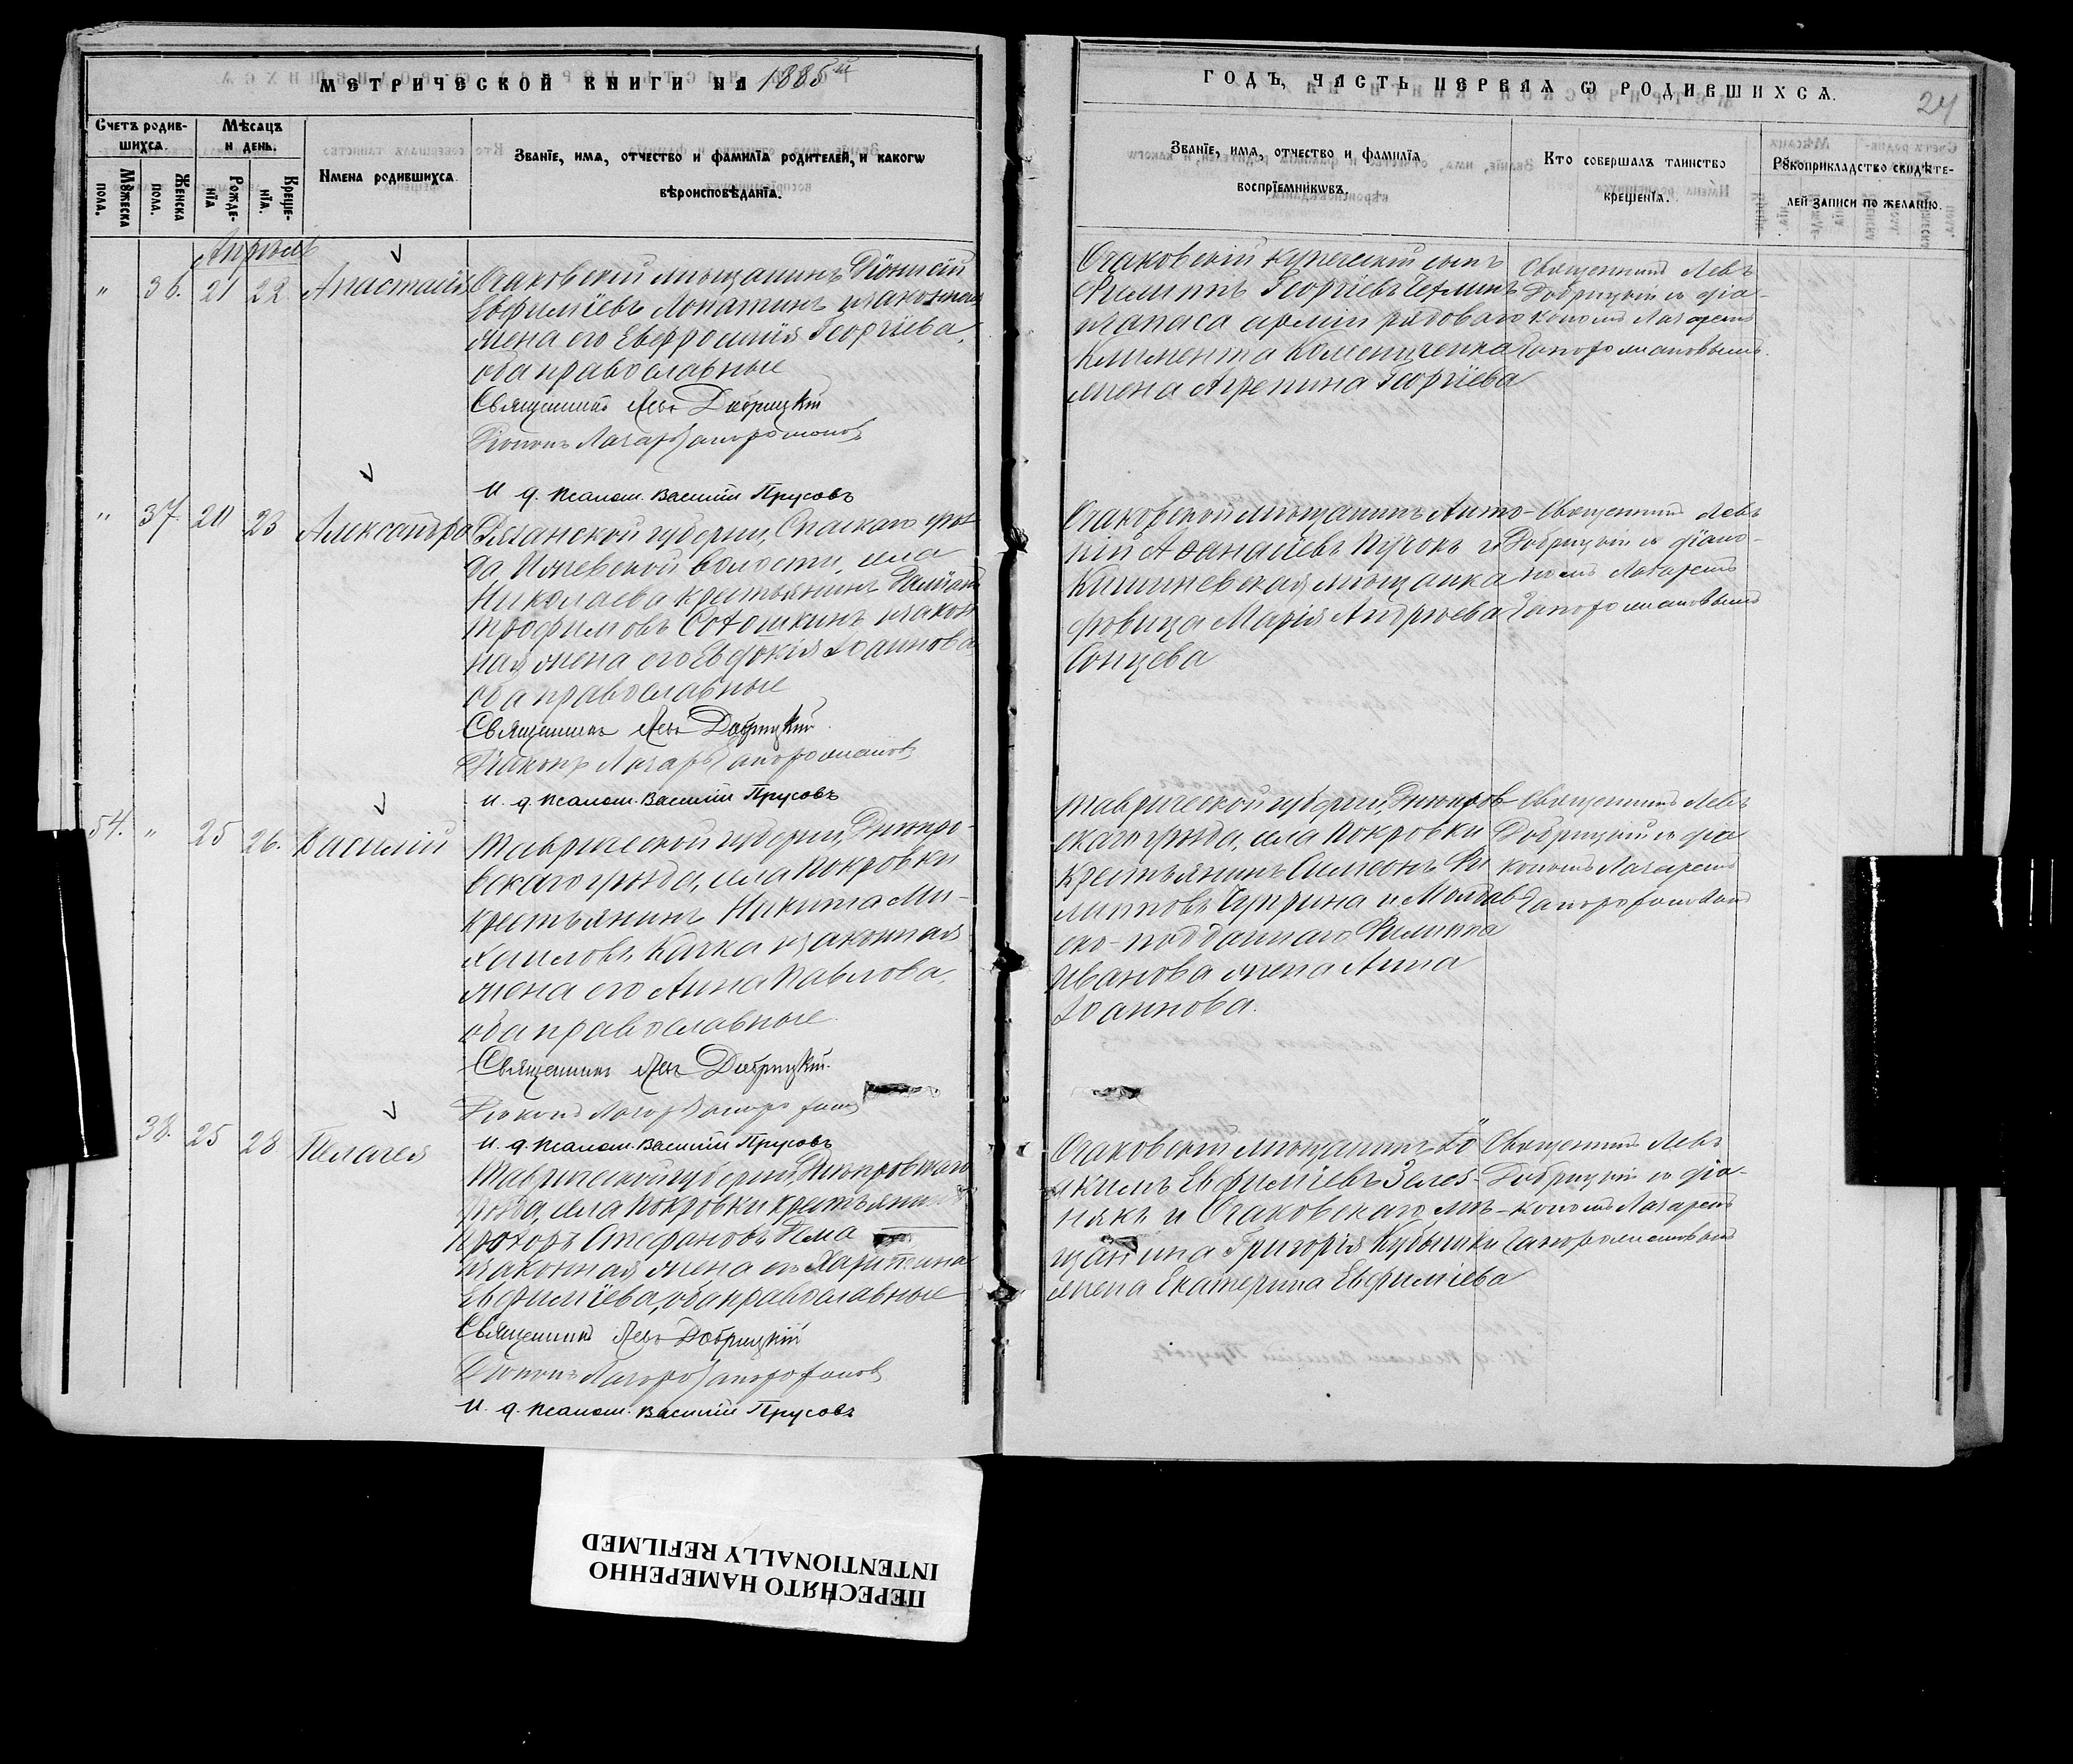 МЕТРИЧЕСКОЙ КНИГИ НА 1885й
ГОДЪ, ЧАСТЬ ПЕРВАЯ Ѡ РОДИВШИХСѦ.
24
Счетъ родив-
шихсѧ.
Мѣсѧцъ
и день.
Имена родившихсѧ
Званїе, имѧ, отчество и фамилїѧ родителей, и какогѡ
вѣроисповѣданїѧ.
Мꙋжеска
пола.
Женска
пола.
Рожде-
нїѧ
Креще-
нїѧ.
Званїе, имѧ, отчество и фамилїѧ
воспрїемникѡвъ.
Кто совершалъ таинство
крещенїѧ.
Рꙋкоприкладство свидѣте-
лей записи по желанїю.
Апрѣль
" 36. 21 22 Анастасія
Очаковскій мѣщанинъ Діонисій
Евфиміевъ Лопатинъ и законная
жена его Евфросинія Георгіева,
оба православные
Священникъ Левъ Добрицкій
Діаконъ Лазарь
И. д. псалом. Василій Прусовъ
Очаковскій купеческій сынъ
Филиппъ Георгіевъ и
запаса арміи рядоваго
Климента
жена Агрепина Георгіева
Священникъ Левъ
Добрицкій съ діа-
кономъ Лазаремъ
" 37. 20 23 Александра
Рязанской губерніи, Спаскаго уѣз-
да Ижевской волости, села
Николаева крестьянинъ
Трофимовъ и закон
ная жена его Евдокія Іоаннова
оба православные
Священникъ Левъ Добрицкій
Діаконъ Лазарь
И. д. псалом. Василій Прусовъ
Очаковской мѣщанинъ Анто-
ній Аѳанасіевъ и
Кишиневская мѣщанка
вдовица Марія Андреева
Сонцева
Священникъ Левъ
Добрицкій съ діако-
номъ Лазаремъ
54. " 25 26. Василій
Таврической губерніи, Днѣпро-
вскаго уѣзда, села Покровки
крестьянинъ Никита Ми-
хаиловъ Качка и законная
жена его Анна Павлова,
оба православные
Священникъ Левъ Добрицкій
Діаконъ Лазарь
И. д. псалом. Василій Прусовъ
Таврической губерніи, Днѣпров
скаго уѣзда, села Покровки
крестьянинъ Симеонъ Фи
липповъ Чуприна и Молдав
ско-подданнаго Филиппа
Иванова жена Анна
Іоаннова.
Священникъ Левъ
Добрицкій съ діа
кономъ Лазаремъ
38. 25 28 Пелагея
Таврической губерніи, Днѣпровскаго
уѣзда, села Покровки крестьянинъ
Прохоръ Стефановъ
и законная жена его Харитина
Евфиміева, оба православные
Священникъ Левъ Добрицкій
Діаконъ Лазарь
И. д. псалом. Василій Прусовъ
Очаковскій мѣщанинъ Іо
акимъ Евфиміевъ
и Очаковскаго мѣ-
щанина Григорія
жена Екатерина Евфиміева
Священникъ Левъ
Добрицкій съ діа-
кономъ Лазаремъ
ПЕРЕСНЯТО НАМЕРЕННО
INTENTIONALLY REFILMED